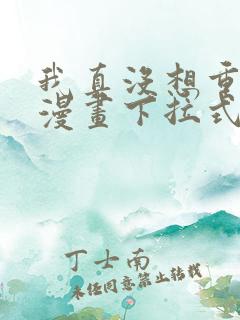 我真没想重
漫畫下拉式
丁士南
未经同意禁止转载